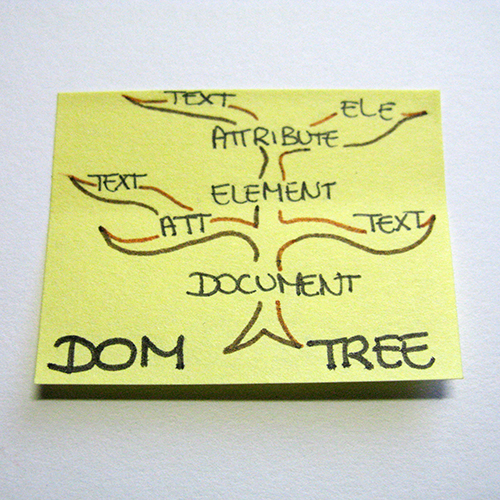 TEXT ELE
ATTRIBUTE
TEXT ELEMENT
ATT TEXT
DOCUMENT
DOM TREE